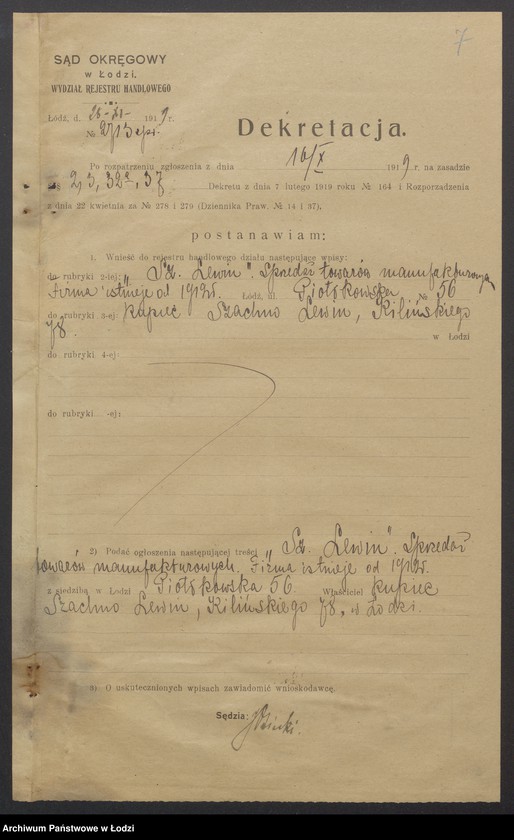 7
SĄD OKRĘGOWY
w Łodzi,
WYDZIAŁ REJESTRU HANDLOWEGO
Łódź, d. 28-XI- 1919 r.
№ 2713
Dekretacja.
Po rozpatrzeniu zgłoszenia z dnia 16/X 1919 r. na zasadzie
§§ 2, 3, 32a, 37 Dekretu z dnia 7 lutego 1919 roku № 164 i Rozporządzenia
z dnia 22 kwietnia za № 278 i 279 (Dziennika Praw. № 14 i 37).
postanawiam:
1. Wnieść do rejestru handlowego działu następujące wpisy:
do rubryki 2-iej: „Sz. Lewin". Sprzedaż towarów manufakturowych
Firma istnieje od 1912 r. Łódź, ul. Piotrkowska № 56
do rubryki 3-ej: kupiec Szachno Lewin, Kilińskiego
78. w Łodzi
do rubryki 4-ej:
do rubryki -ej:
2) Podać ogłoszenia następującej treści „Sz. Lewin". Sprzedaż
towarów manufakturowych. Firma istnieje od 1912 r.
z siedzibą w Łodzi Piotrkowska 56 Właściciel kupiec
Szachno Lewin, Kilińskiego 78, w Łodzi.
3) O uskutecznionych wpisach zawiadomić wnioskodawcę.
Sędzia:
Archiwum Państwowe w Łodzi